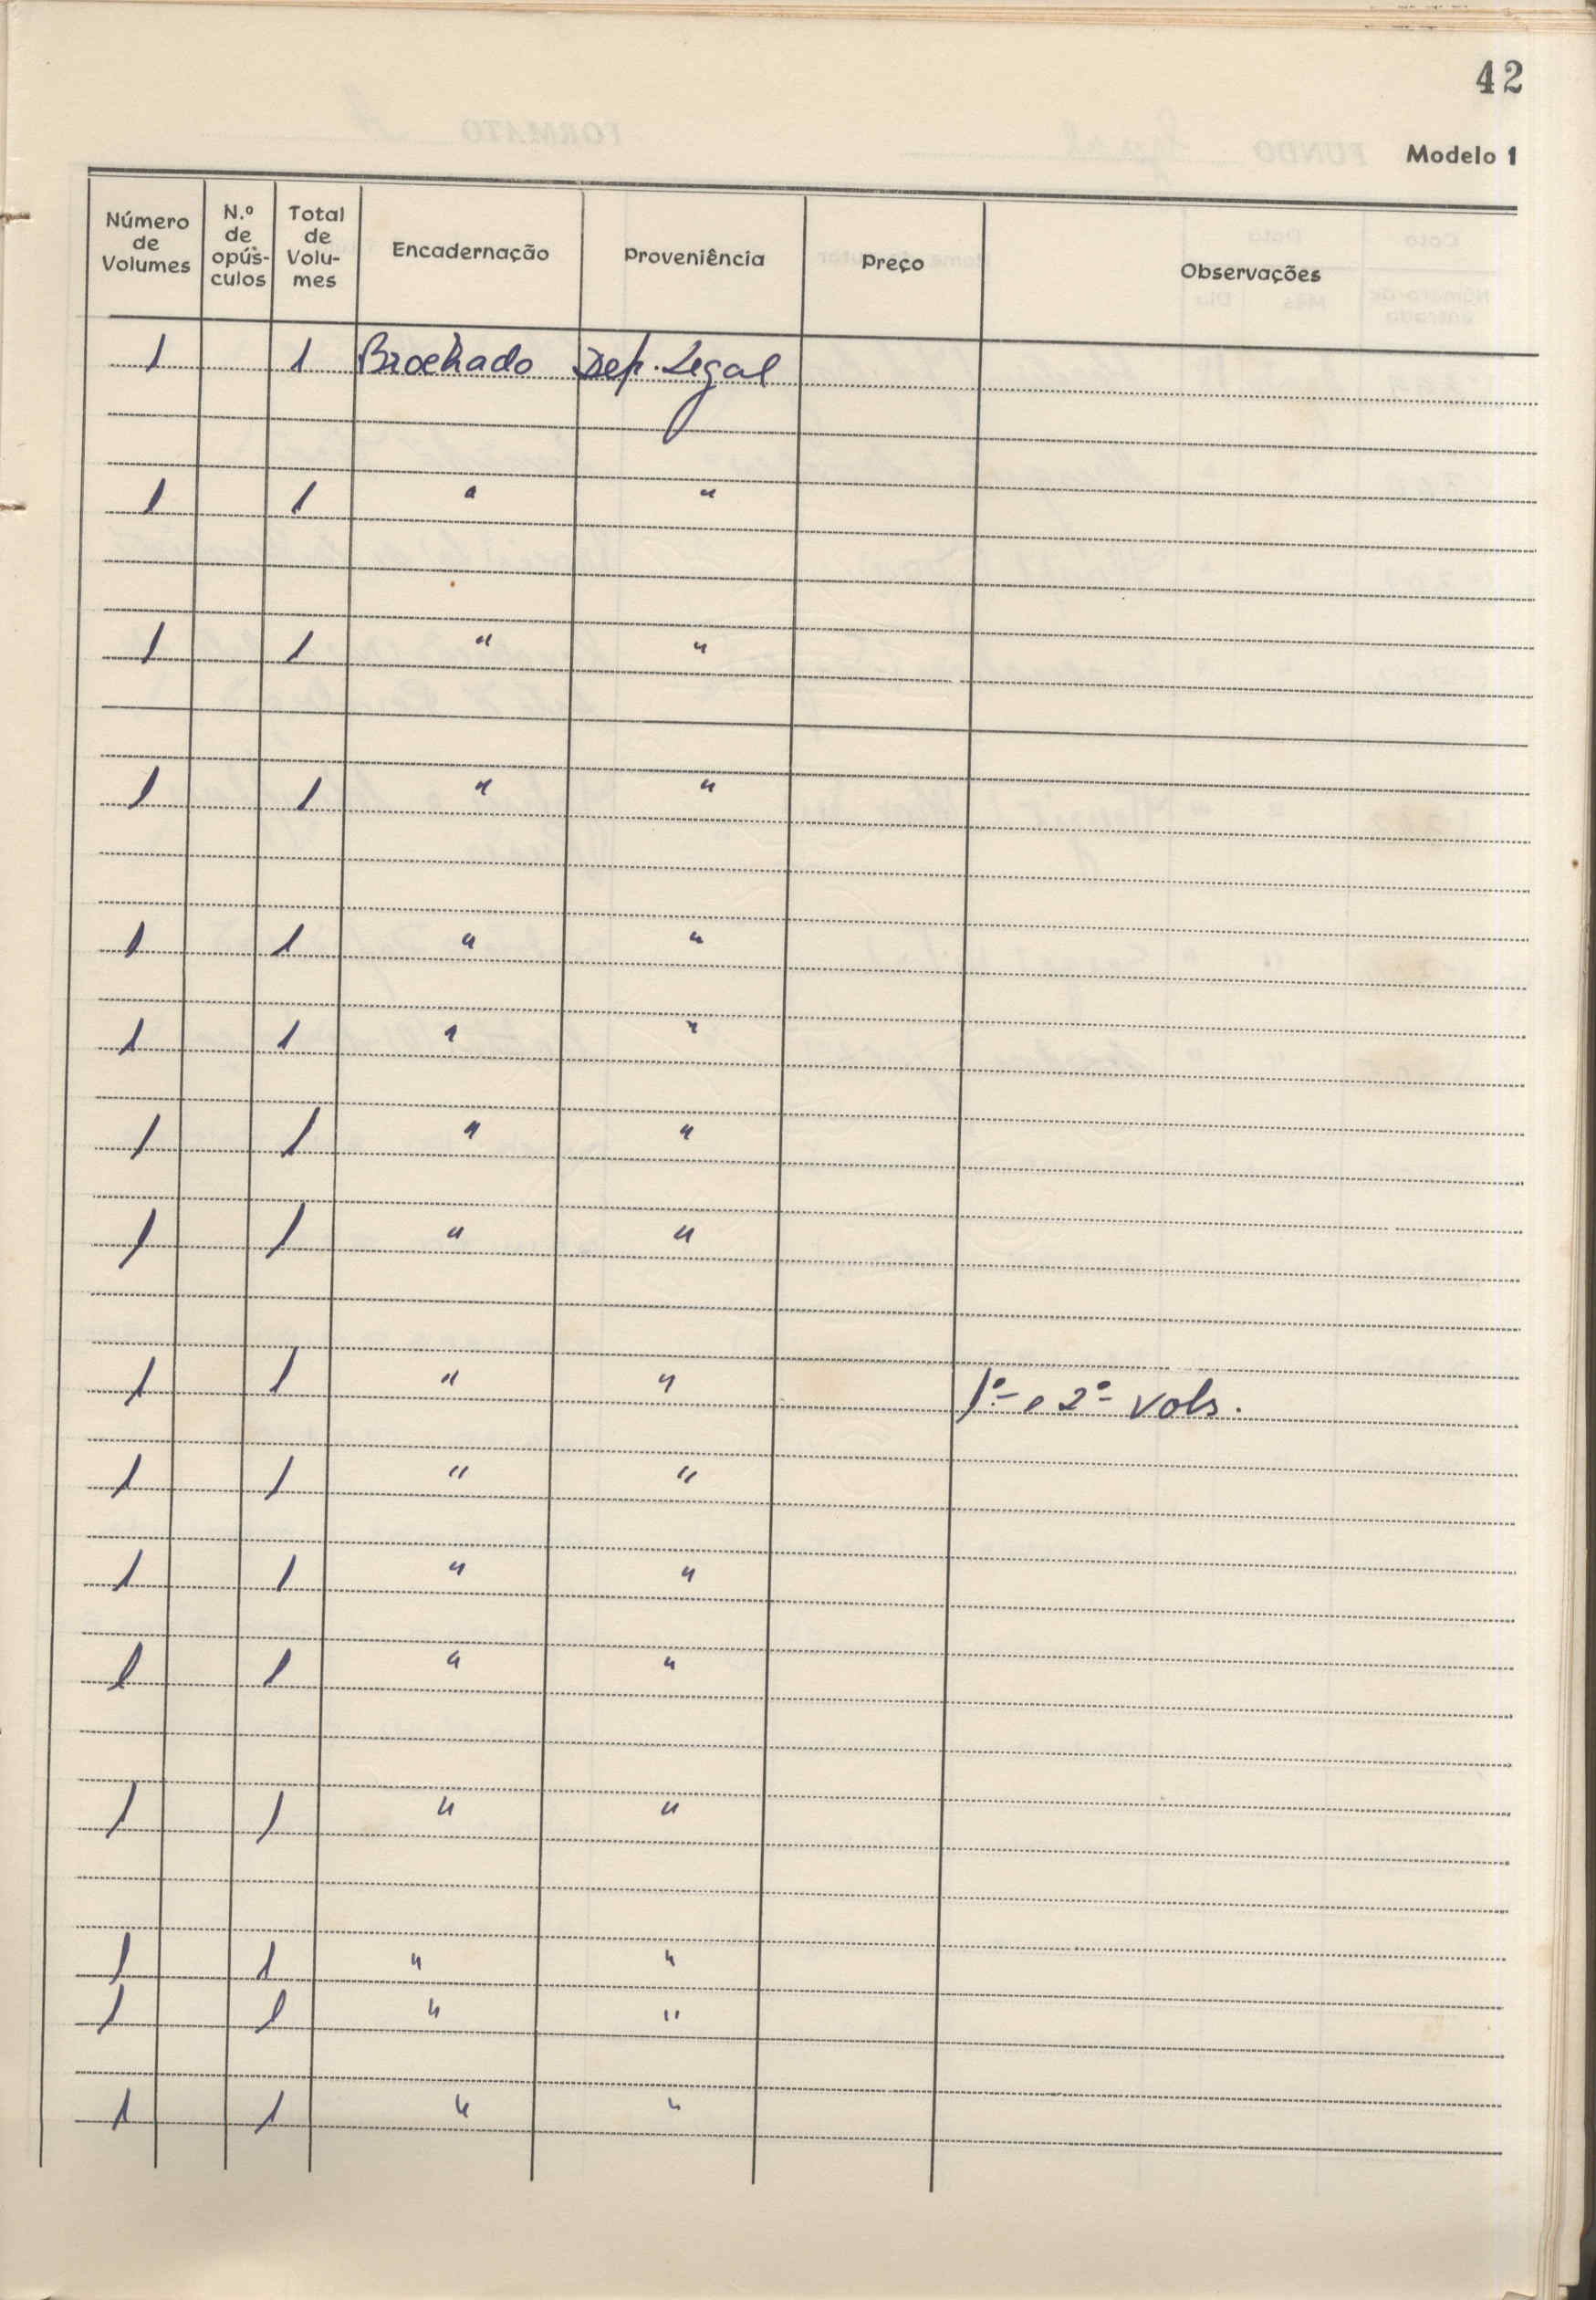 42
Modelo 1
Número de Volumes
N.º de opús-culos
Total de Volu-mes
Encadernação
Proveniência
Preço
Observações
1 1 Brochado Dep. Legal
1 1 " "
1 1 " "
1 1 " "
1 1 " "
1 1 " "
1 1 " "
1 1 " "
1 1 " " 1º e 2º vols.
1 1 " "
1 1 " "
1 1 " "
1 1 " "
1 1 " "
1 1 " "
1 1 " "